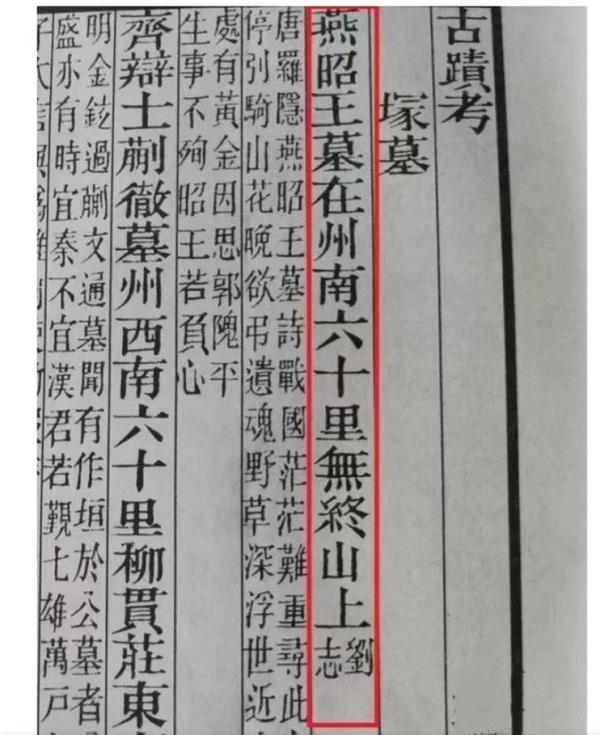 古蹟考
塚墓
燕昭王墓在州南六十里無終山上劉志
唐羅隱燕昭王墓詩戰國茫茫難重尋此
停引騎山花晚欲弔遺魂野草深浮世近
處有黃金因思郭隗平
生事不殉昭王若負心
齊辯士蒯徹墓州西南六十里柳貫莊東
明金鉉過蒯文通墓聞有作垣於公墓者
盛亦有時宜秦不宜漢君若覲七雄萬戶